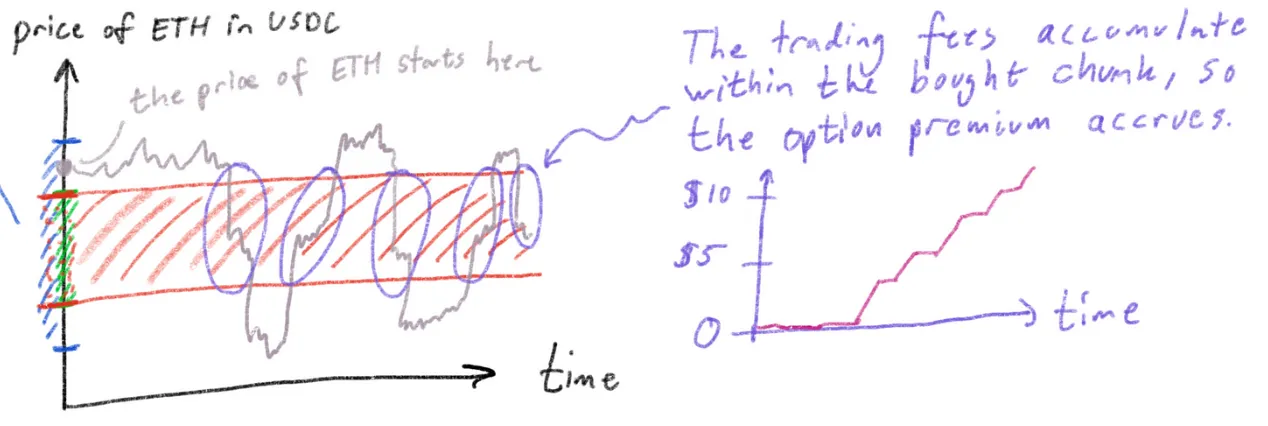 price of ETH in USDC
the price of ETH starts here
time
The trading fees accumulate
within the bought chunk, so
the option premium accrues.
$10
$5
0
time